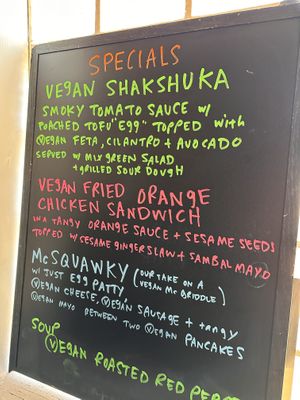 SPECIALS
VEGAN SHAKSHUKA
SMOKY TOMATO SAUCE w/
POACHED TOFU "EGG" TOPPED with
VEGAN FETA, CILANTRO + AVOCADO
SERVED w/ MIX GREEN SALAD
+ GRILLED SOUR DOUGH
VEGAN FRIED ORANGE
CHICKEN SANDWICH
IN A TANGY ORANGE SAUCE + SESAME SEEDS
TOPPED w/ SESAME GINGER SLAW + SAMBAL MAYO
McSQUAWKY (OUR TAKE ON A
VEGAN Mc GRIDDLE)
w/ JUST EGG PATTY,
VEGAN CHEESE, VEGAN SAUSAGE + tangy
VEGAN MAYO BETWEEN TWO VEGAN PANCAKES
SOUP
VEGAN ROASTED RED PEPP